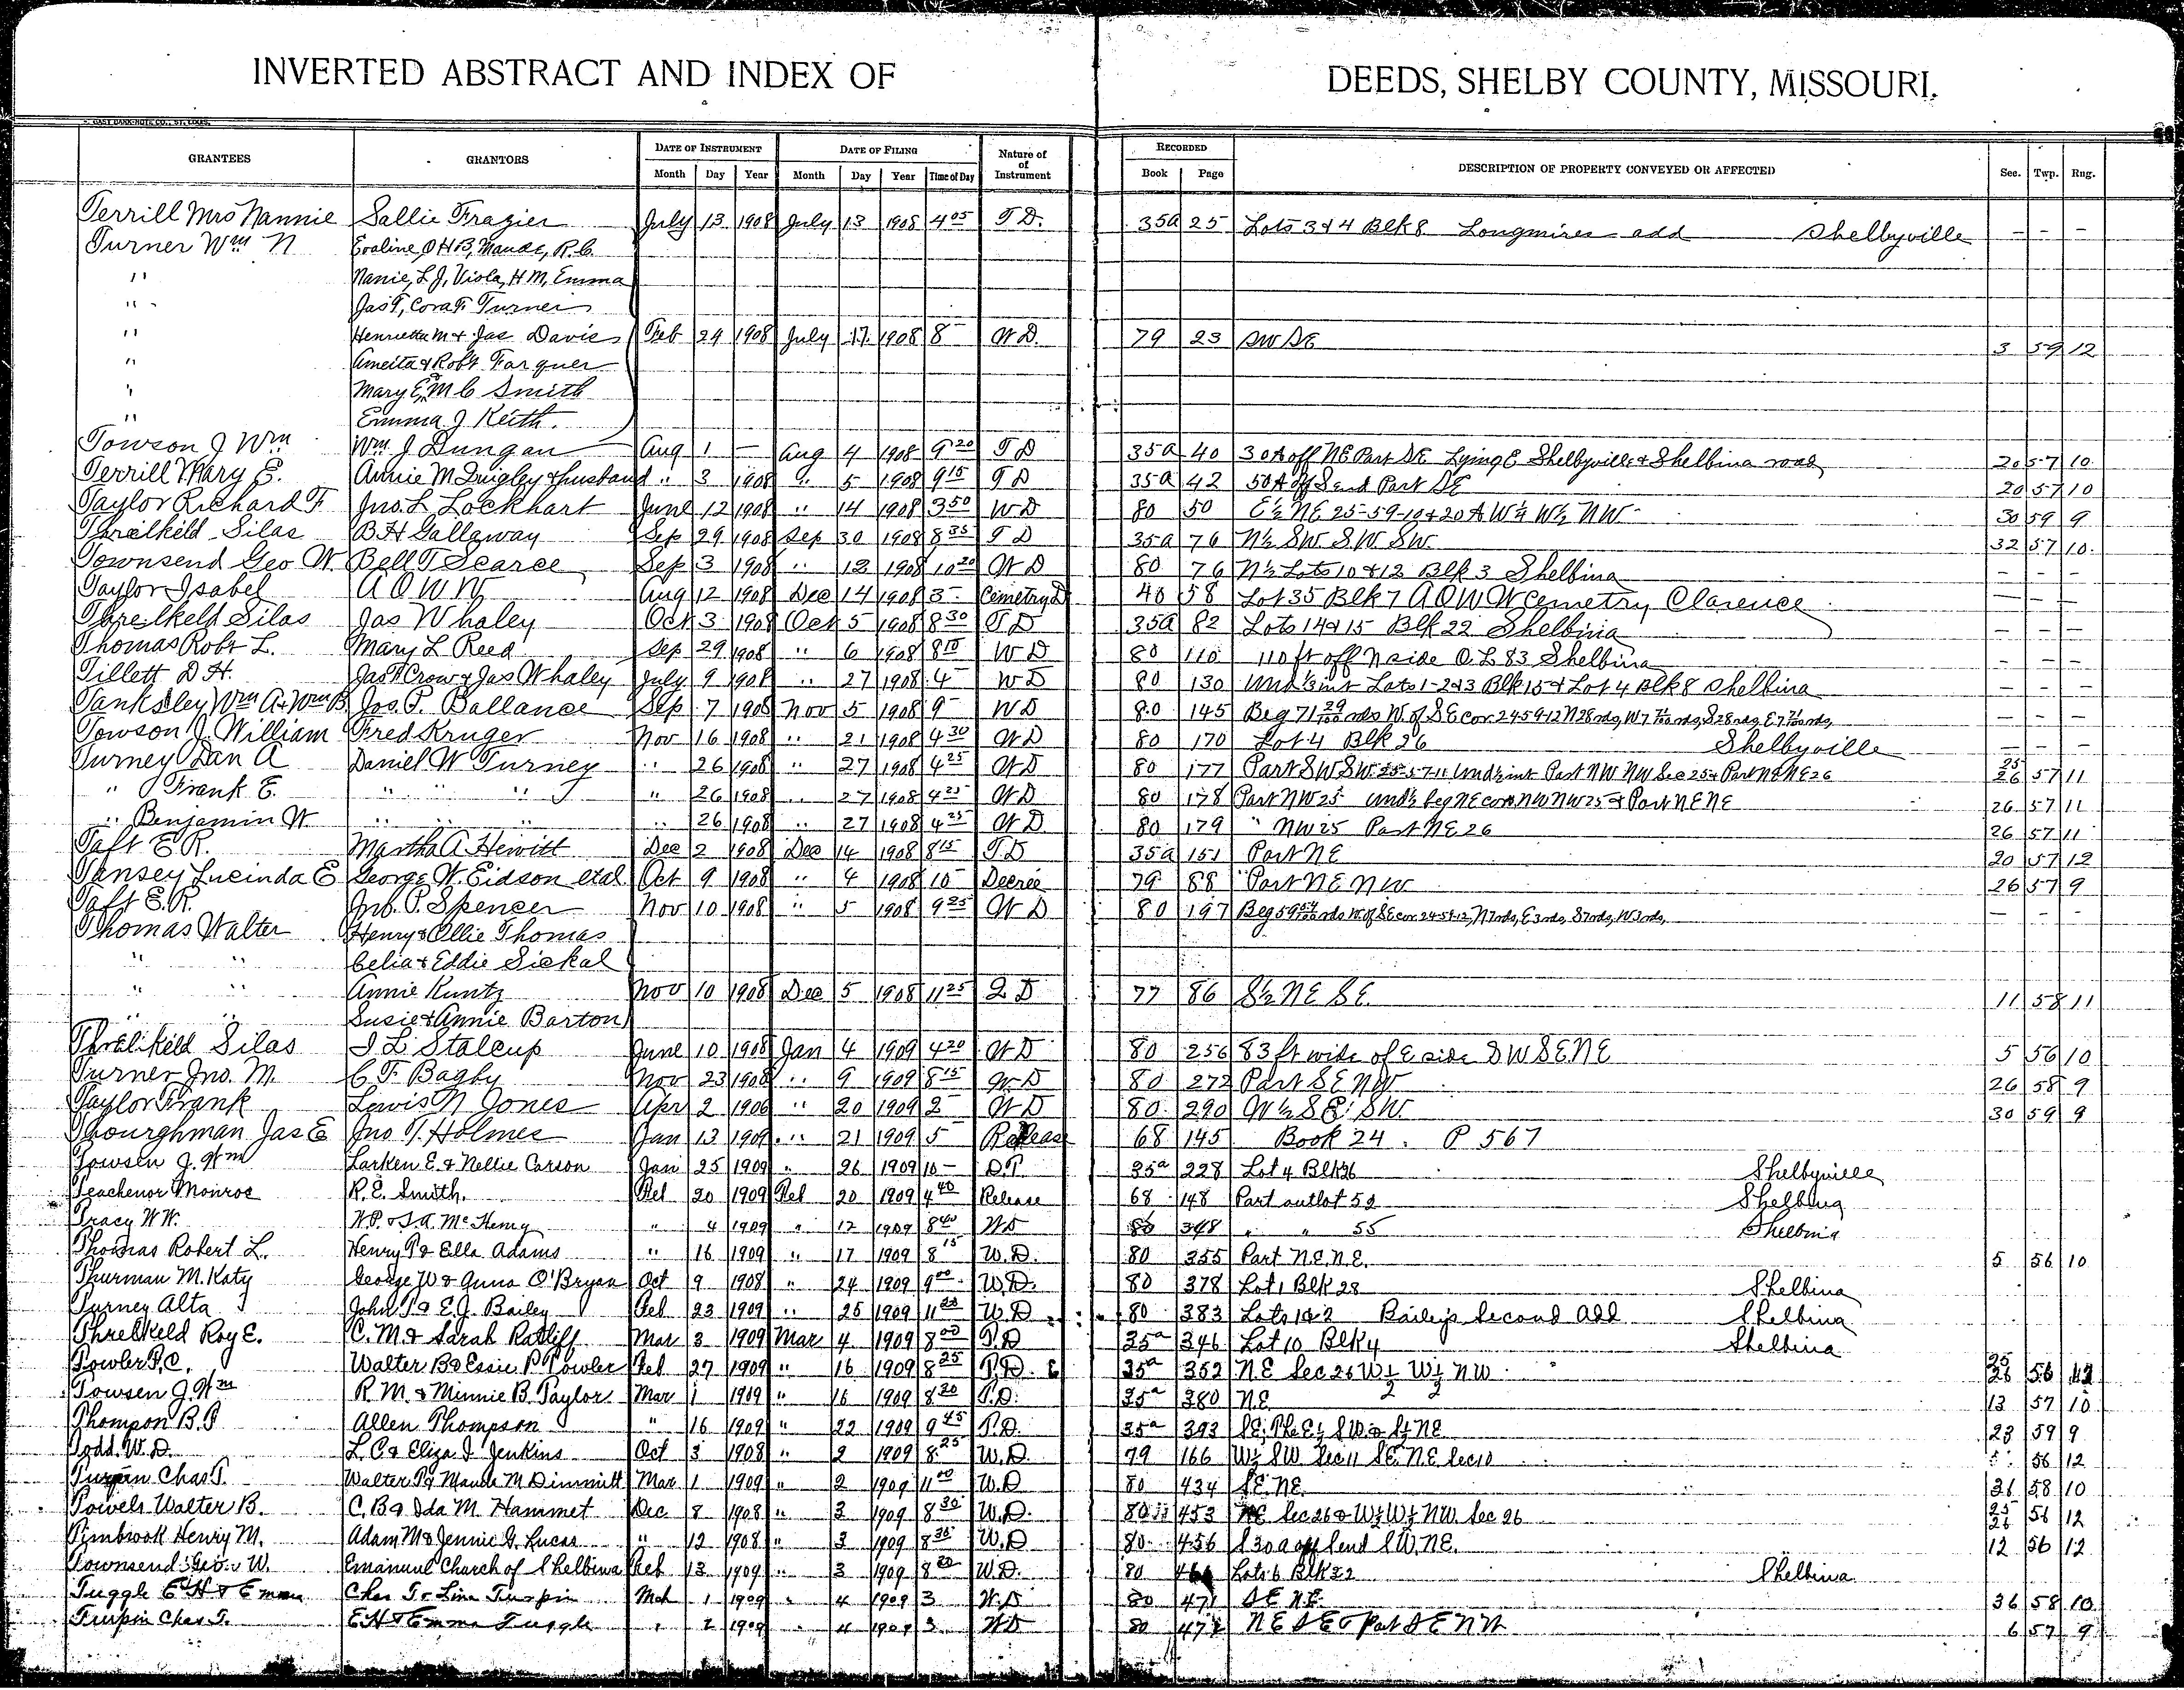 INVERTED ABSTRACT AND INDEX OF DEEDS, SHELBY COUNTY, MISSOURI.
GRANTEES GRANTORS DATE OF INSTRUMENT DATE OF FILING Nature of RECORDED DESCRIPTION OF PROPERTY CONVEYED OR AFFECTED Sec. Twp. Rng.
Month Day Year Month Day Year Time of Day of Instrument Book Page
Terrill Mrs Nannie Sallie Frazier July 13 1908 July 13 1908 4 05 T D. 35a 25 Lots 3 & 4 Blk 8 Longmires add Shelbyville – – –
Turner Wm N Evaline, O H B, Maude, R. C.
" Nanie, L J, Viola, H M, Emma
" Jas T, Cora F Turner
" Henrietta M & Jas Davis Feb 24 1908 July 17 1908 8 W D. 79 23 SW SE 3 59 12
" Robt Farquer
" Mary E, M C Smith
" Emma J Keith.
Towson J Wm Wm J Dungan Aug 1 – Aug 4 1908 9 20 T D 35a 40 30 A off NE Part SE Lying E Shelbyville & Shelbina road 20 57 10
Terrill Mary E. Annie M Quigley & husband " 3 1908 " 5 1908 9 15 T D 35a 42 50 A off S end Part SE 20 57 10
Taylor Richard F Jno. L Lockhart June 12 1908 " 14 1908 3 50 W D 80 50 E½ NE 25-59-10 & 20 A W½ W½ NW 30 59 9
Threlkeld Silas B H Gallaway Sep 29 1908 Sep 30 1908 8 35 T D 35a 76 N½ SW. S.W. SW. 32 57 10.
Townsend Geo W Bell T Scarce Sep 3 1908 " 12 1908 10 20 W D 80 76 N½ Lots 10 & 12 Blk 3 Shelbina – – –
Taylor Isabel A O W W Aug 12 1908 Dec 14 1908 3 Cemetry D 40 58 Lot 35 Blk 7 A O W W Cemetry Clarence – – –
Threlkeld Silas Jas Whaley Oct 3 1908 Oct 5 1908 8 30 T D 35a 82 Lots 14 & 15 Blk 22 Shelbina – – –
Thomas Robt L. Mary L Reed Sep 29 1908 " 6 1908 8 10 W D 80 110 110 ft off N side O. L 83 Shelbina – – –
Tillett D H. Jas T Crow & Jas Whaley July 9 1908 " 27 1908 4 W D 80 130 Und ⅓ int Lots 1-2 & 3 Blk 15 & Lot 4 Blk 8 Shelbina – – –
Tanksley Wm A & Wm B Jos. P. Ballance Sep 7 1908 Nov 5 1908 9 W D 80 145 Beg 71 29/100 rds W of SE cor. 24 59 12 N 28 rds, W 7 71/100 rds, S 28 rds, E 7 71/100 rds, – – –
Towson J. William Fred Kruger Nov 16 1908 " 21 1908 4 30 W D 80 170 Lot 4 Blk 26 Shelbyville – – –
Turney Dan A Daniel W Turney " 26 1908 " 27 1908 4 25 W D 80 177 Part SW SW 25-57-11 Und ½ int Part NW NW Sec 25 & Part NE NE 26 25 26 57 11
" Frank E. " " " " 26 1908 " 27 1908 4 25 W D 80 178 Part NW 25 Und ½ beg NE cor NW NW 25 & Part NE NE 26 57 11
" Benjamin W. " " " " 26 1908 " 27 1908 4 25 W D 80 179 " NW 25 Part NE 26 26 57 11
Taft E. R. Martha A. Hewitt Dec 2 1908 Dec 14 1908 8 15 T D 35a 151 Part NE 20 57 12
Tansey Lucinda E George W. Eidson etal Oct 9 1908 " 4 1908 10 Decree 79 88 Part NE NW 26 57 9
Taft E. R. Jno. P. Spencer Nov 10 1908 " 5 1908 9 25 W D 80 197 Beg 59 rds W of SE cor. 24-59-12, N 7 rds, E 3 rds, S 7 rds, W 3 rds, – – –
Thomas Walter Henry & Ollie Thomas
" " Celia & Eddie Sickal
" " Annie Kuntz Nov 10 1908 Dec 5 1908 11 25 Q D 77 86 S½ NE SE. 11 58 11
" " Susie & Annie Barton
Threlkeld Silas I L Stalcup June 10 1908 Jan 4 1909 4 20 W D 80 256 83 ft wide of E side SW SE NE 5 56 10
Turner Jno. M. C. F. Bagby Nov 23 1908 " 9 1909 8 15 W D 80 272 Part SE NW 26 58 9
Taylor Frank Lewis N Jones Apr 2 1906 " 20 1909 2 W D 80 290 W½ SE SW. 30 59 9
Thourghman Jas E Jno T. Holmes Jan 13 1909 " 21 1909 5 Release 68 145 Book 24. P 567
Towsen J. Wm Larken E. & Nellie Carson Jan 25 1909 " 26 1909 10 – D.T. 35a 228 Lot 4 Blk 26 Shelbyville
Teachenor Monroe R. E. Smith. Feb 20 1909 Feb 20 1909 4 40 Release 68 148 Part outlot 52 Shelbina
Tracy W W. W. P. & S. A. McHenry " 4 1909 " 12 1909 8 40 W D 80 348 " " 55 Shelbina
Thomas Robert L. Henry T & Ella Adams " 16 1909 " 17 1909 8 15 W. D. 80 355 Part N.E. N.E. 5 56 10
Thurman M. Katy George W & Anna O'Bryan Oct 9 1908 " 24 1909 9 00 W. D. 80 378 Lot 1 Blk 28 Shelbina
Turney Alta John T & E. J. Bailey Feb 23 1909 " 25 1909 11 W. D 80 383 Lots 1 & 2 Bailey's Second Add Shelbina
Threlkeld Roy E. C. M. & Sarah Ratliff Mar 3 1909 Mar 4 1909 8 00 T. D 35a 346 Lot 10 Blk 4 Shelbina
Towler P. C. Walter B & Essie P. Towler Feb 27 1909 " 16 1909 8 25 T. D. 35a 352 N E Sec 26 W½ W½ NW 25 26 56 12
Towsen J. Wm R. M. & Minnie B. Taylor Mar 1 1909 " 16 1909 8 20 T. D. 35a 380 N.E 13 57 10
Thompon B. T Allen Thompson " 16 1909 " 22 1909 9 45 T. D. 35a 393 SE; Pt E½ SW & S½ NE 23 59 9
Todd. W. D. L. C & Eliza J Jenkins Oct 3 1908 " 2 1909 8 25 W. D. 79 166 W½ SW Sec 11 SE. N.E Sec 10 56 12
Turpin Chas T. Walter T & Maude M Dimmitt Mar 1 1909 " 2 1909 11 00 W. D 80 434 SE. NE. 36 58 10
Towels Walter B. C. B & Ida M. Hammet Dec 8 1908 " 3 1909 8 30 W. D. 80 453 NE Sec 26 & W½ W½ NW. Sec 26 25 26 56 12
Timbrook Henry M. Adam M & Jennie G. Lucas " 12 1908 " 3 1909 8 35 W. D 80 456 S 30 a off S end S W. NE. 12 56 12
Townsend Geo. W. Emanuel Church of Shelbina Feb 13 1909 " 3 1909 8 20 W. D. 80 Lots 6 Blk 32 Shelbina
Tuggle E H & Emma Chas T & Lina Turpin Mch 1 1909 " 4 1909 3 W. D 80 471 S E N.E. 36 58 10
Turpin Chas T. E H & Emma Tuggle " 2 1909 " 4 1909 3 W D 80 472 N E S E & Part S E N W 6 57 9